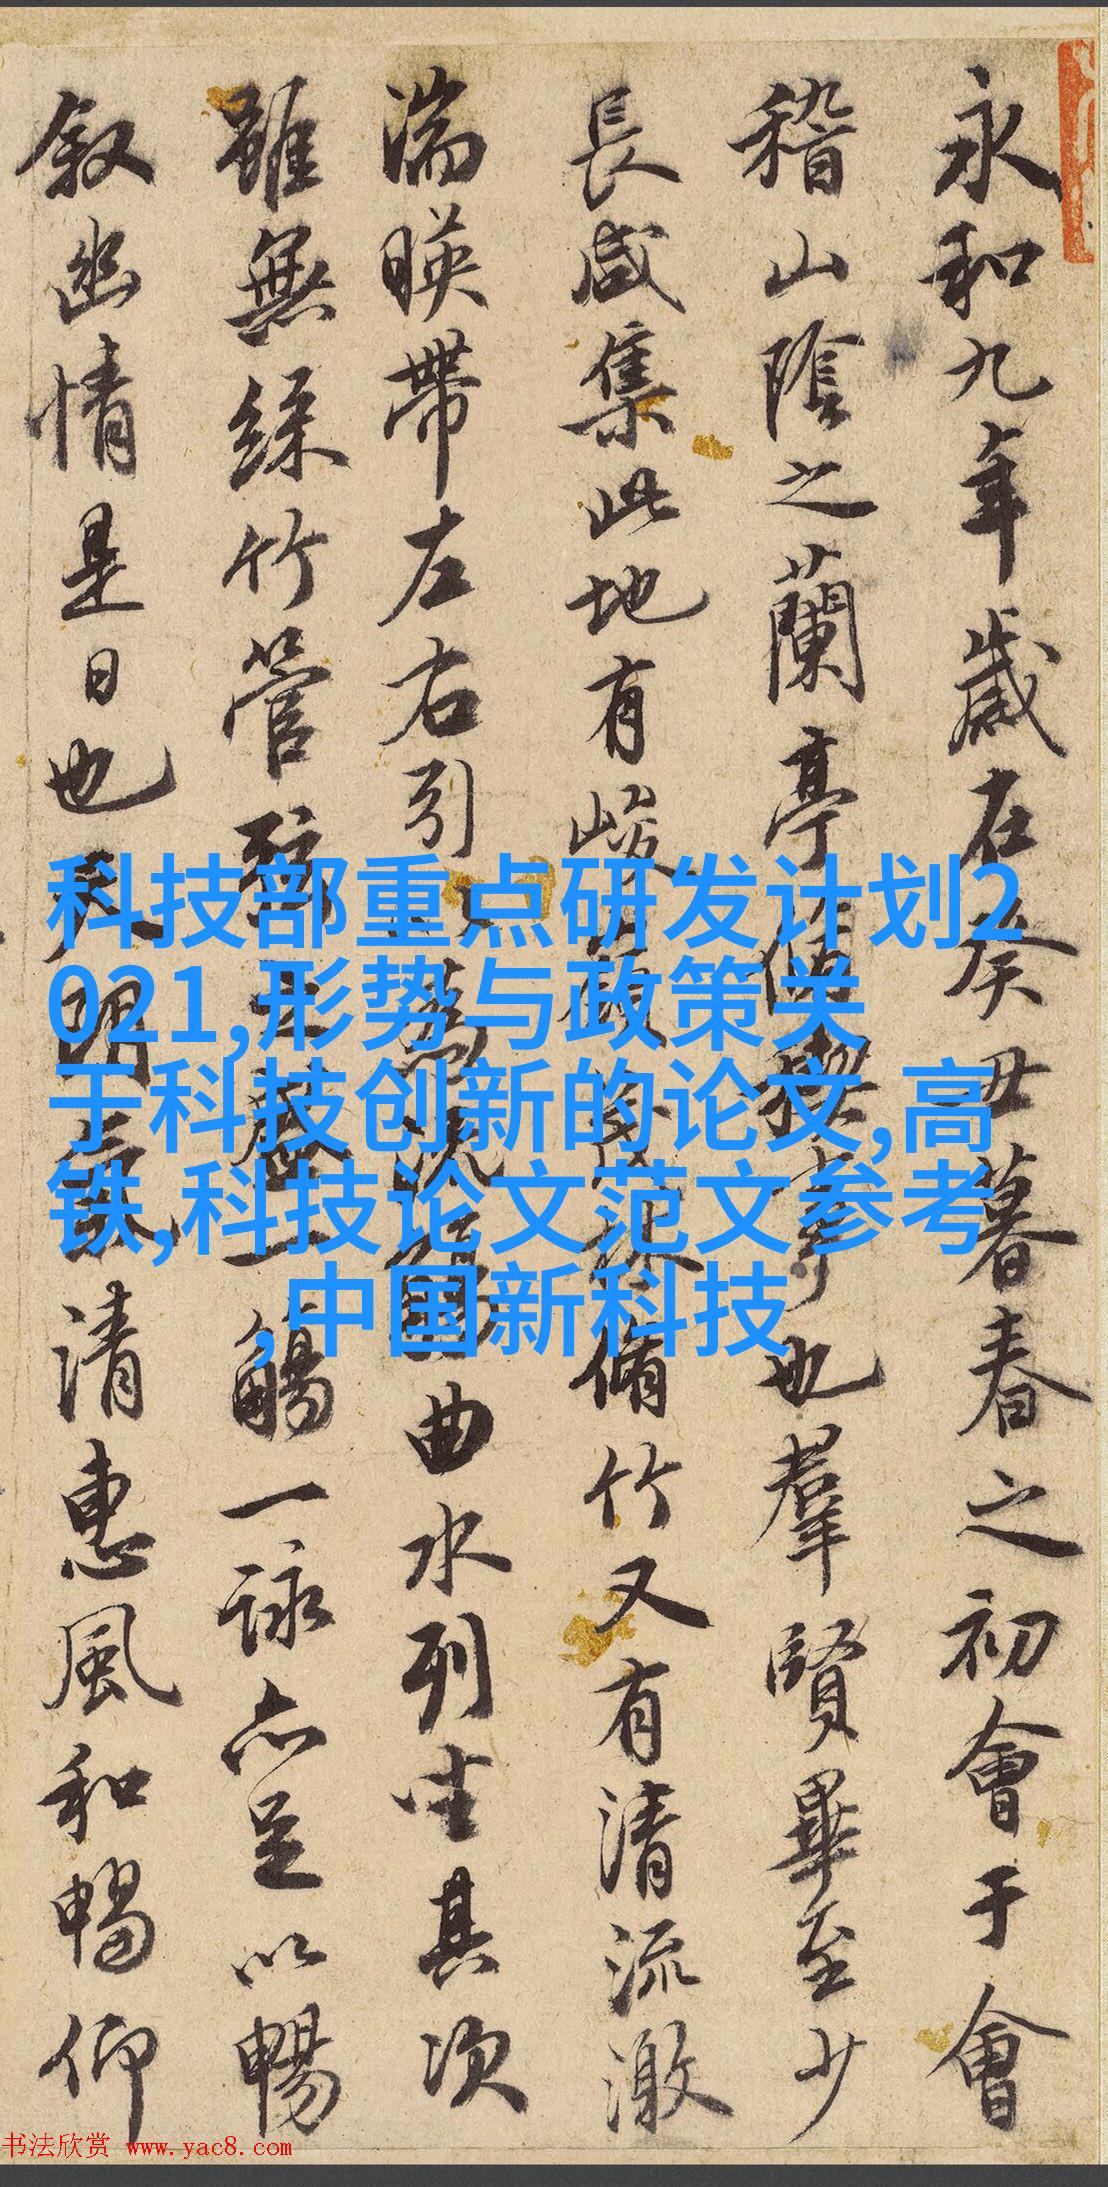 永和九年歲在癸丑暮春之初會于會
稽山陰之蘭亭脩禊事也羣賢畢至少
長咸集此地有峻領茂林脩竹又有清流激
湍暎帶左右引以為流觴曲水列坐其次
雖無絲竹管弦之盛一觴一詠亦足以暢
叙幽情是日也天朗氣清惠風和暢仰
科技部重点研发计划2
021,形势与政策关
于科技创新的论文,高
铁,科技论文范文参考
,中国新科技
书法欣赏 www.yac8.com